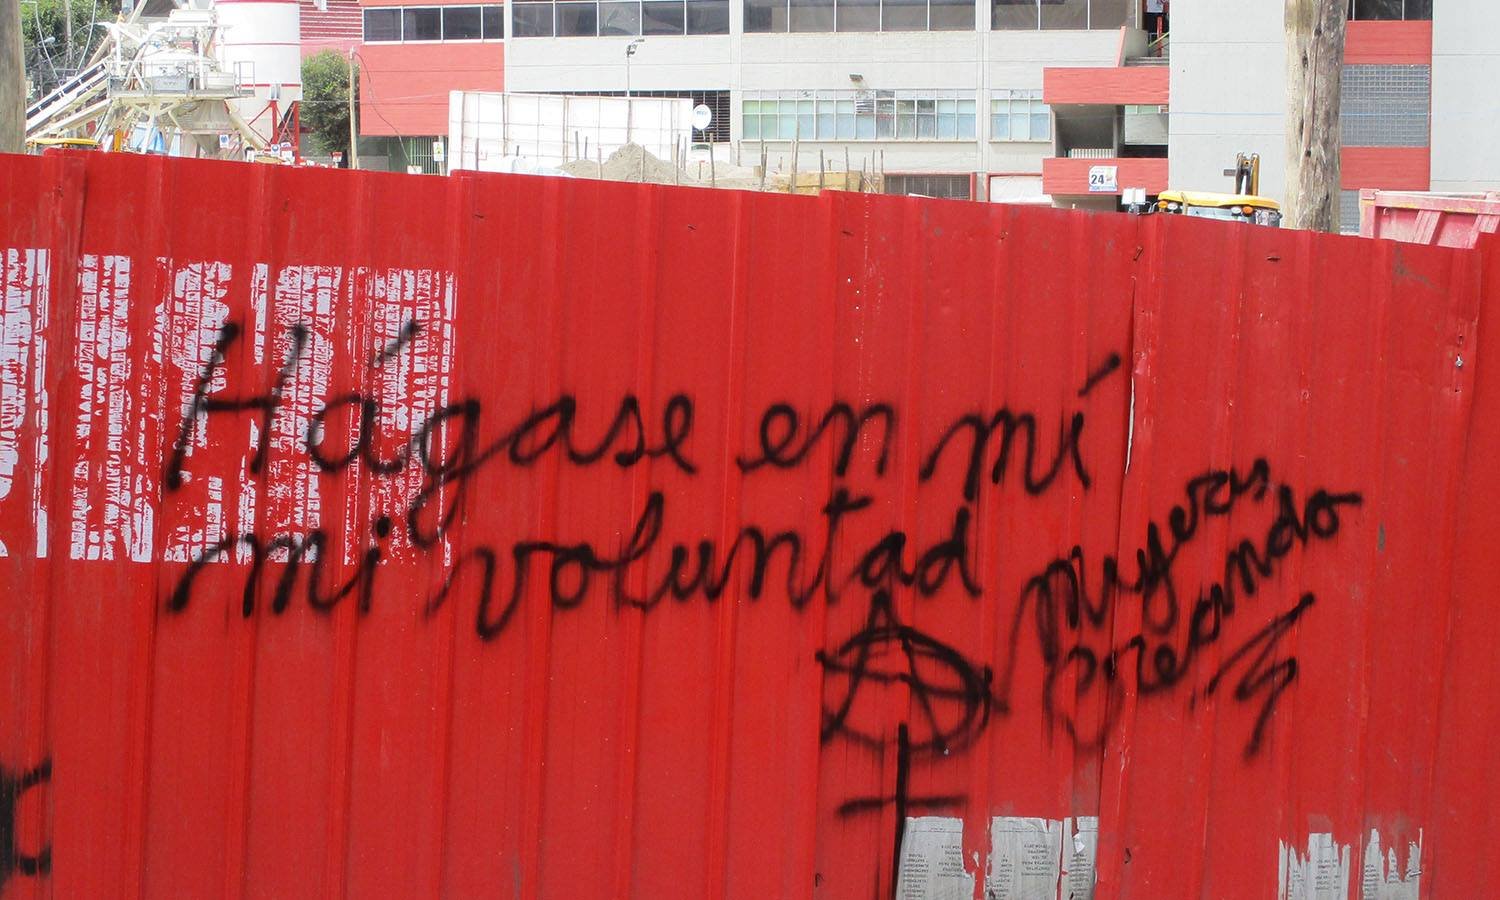 Hágase en mí
mi voluntad
Mujeres
creando
24